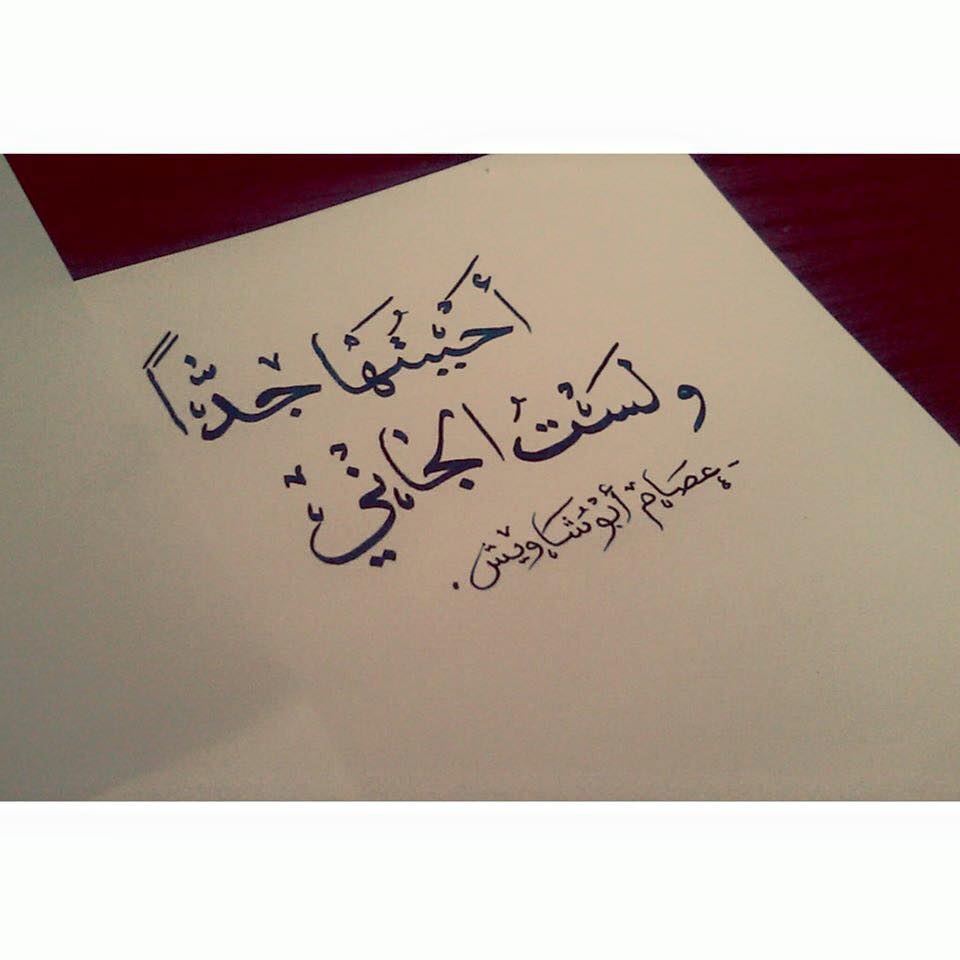 أحْبَبْتُهَا جِدًّا
ولسْتُ الجَاني
- عِصَام أبُو شَاويش.